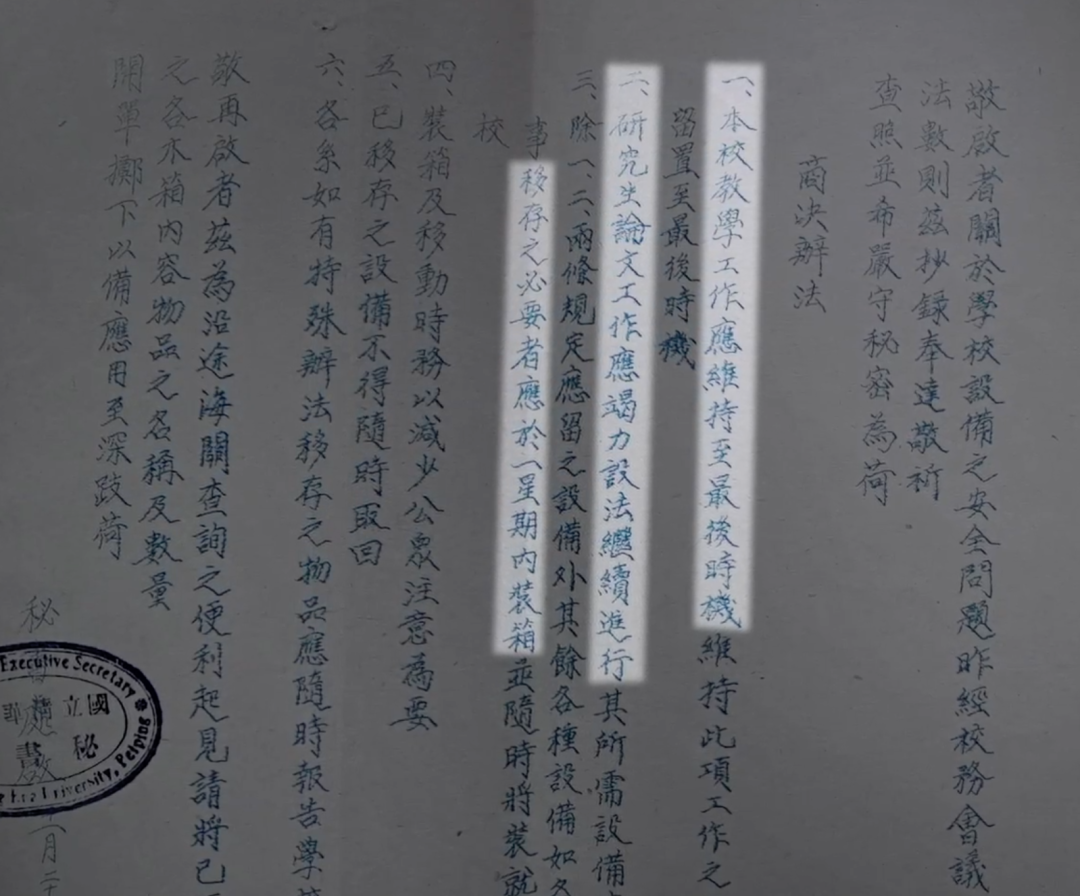 敬啟者關於學校設備之安全問題昨經校務會議
法數則茲抄録奉達敬祈
查照並希嚴守秘密為荷
商決辦法
一、本校教學工作應維持至最後時機維持此項工作之
留置至最後時機
二、研究生論文工作應竭力設法繼續進行其所需設備
三、除一、二、兩條規定應留之設備外其餘各種設備如各
事移存之必要者應於一星期内裝箱並隨時將裝就
校
四、裝箱及移動時務以減少公眾注意為要
五、已移存之設備不得隨時取回
六、各系如有特殊辦法移存之物品應隨時報告學
敬再啟者茲為沿途海關查詢之便利起見請將已
之各木箱内容物品之名稱及數量
開單擲下以備應用至深跂荷
秘 月二十
Executive Secretary
國立 華
秘
University, Peiping